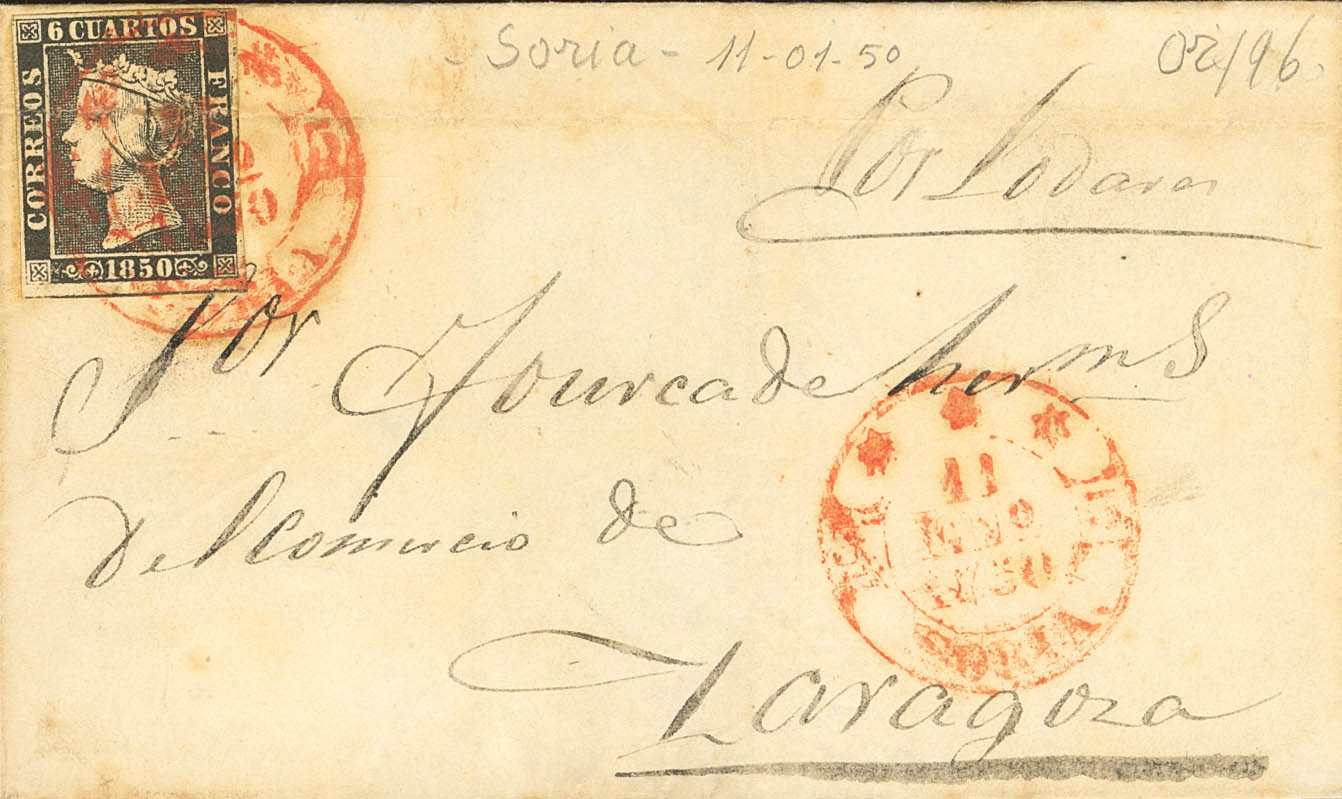 6 CUARTOS
CORREOS
FRANCO
1850
- Soria - 11-01-50
Por Lodares
Sor Fourcade herms
Del Comercio de
Zaragoza
11
ENE
1850
SORIA